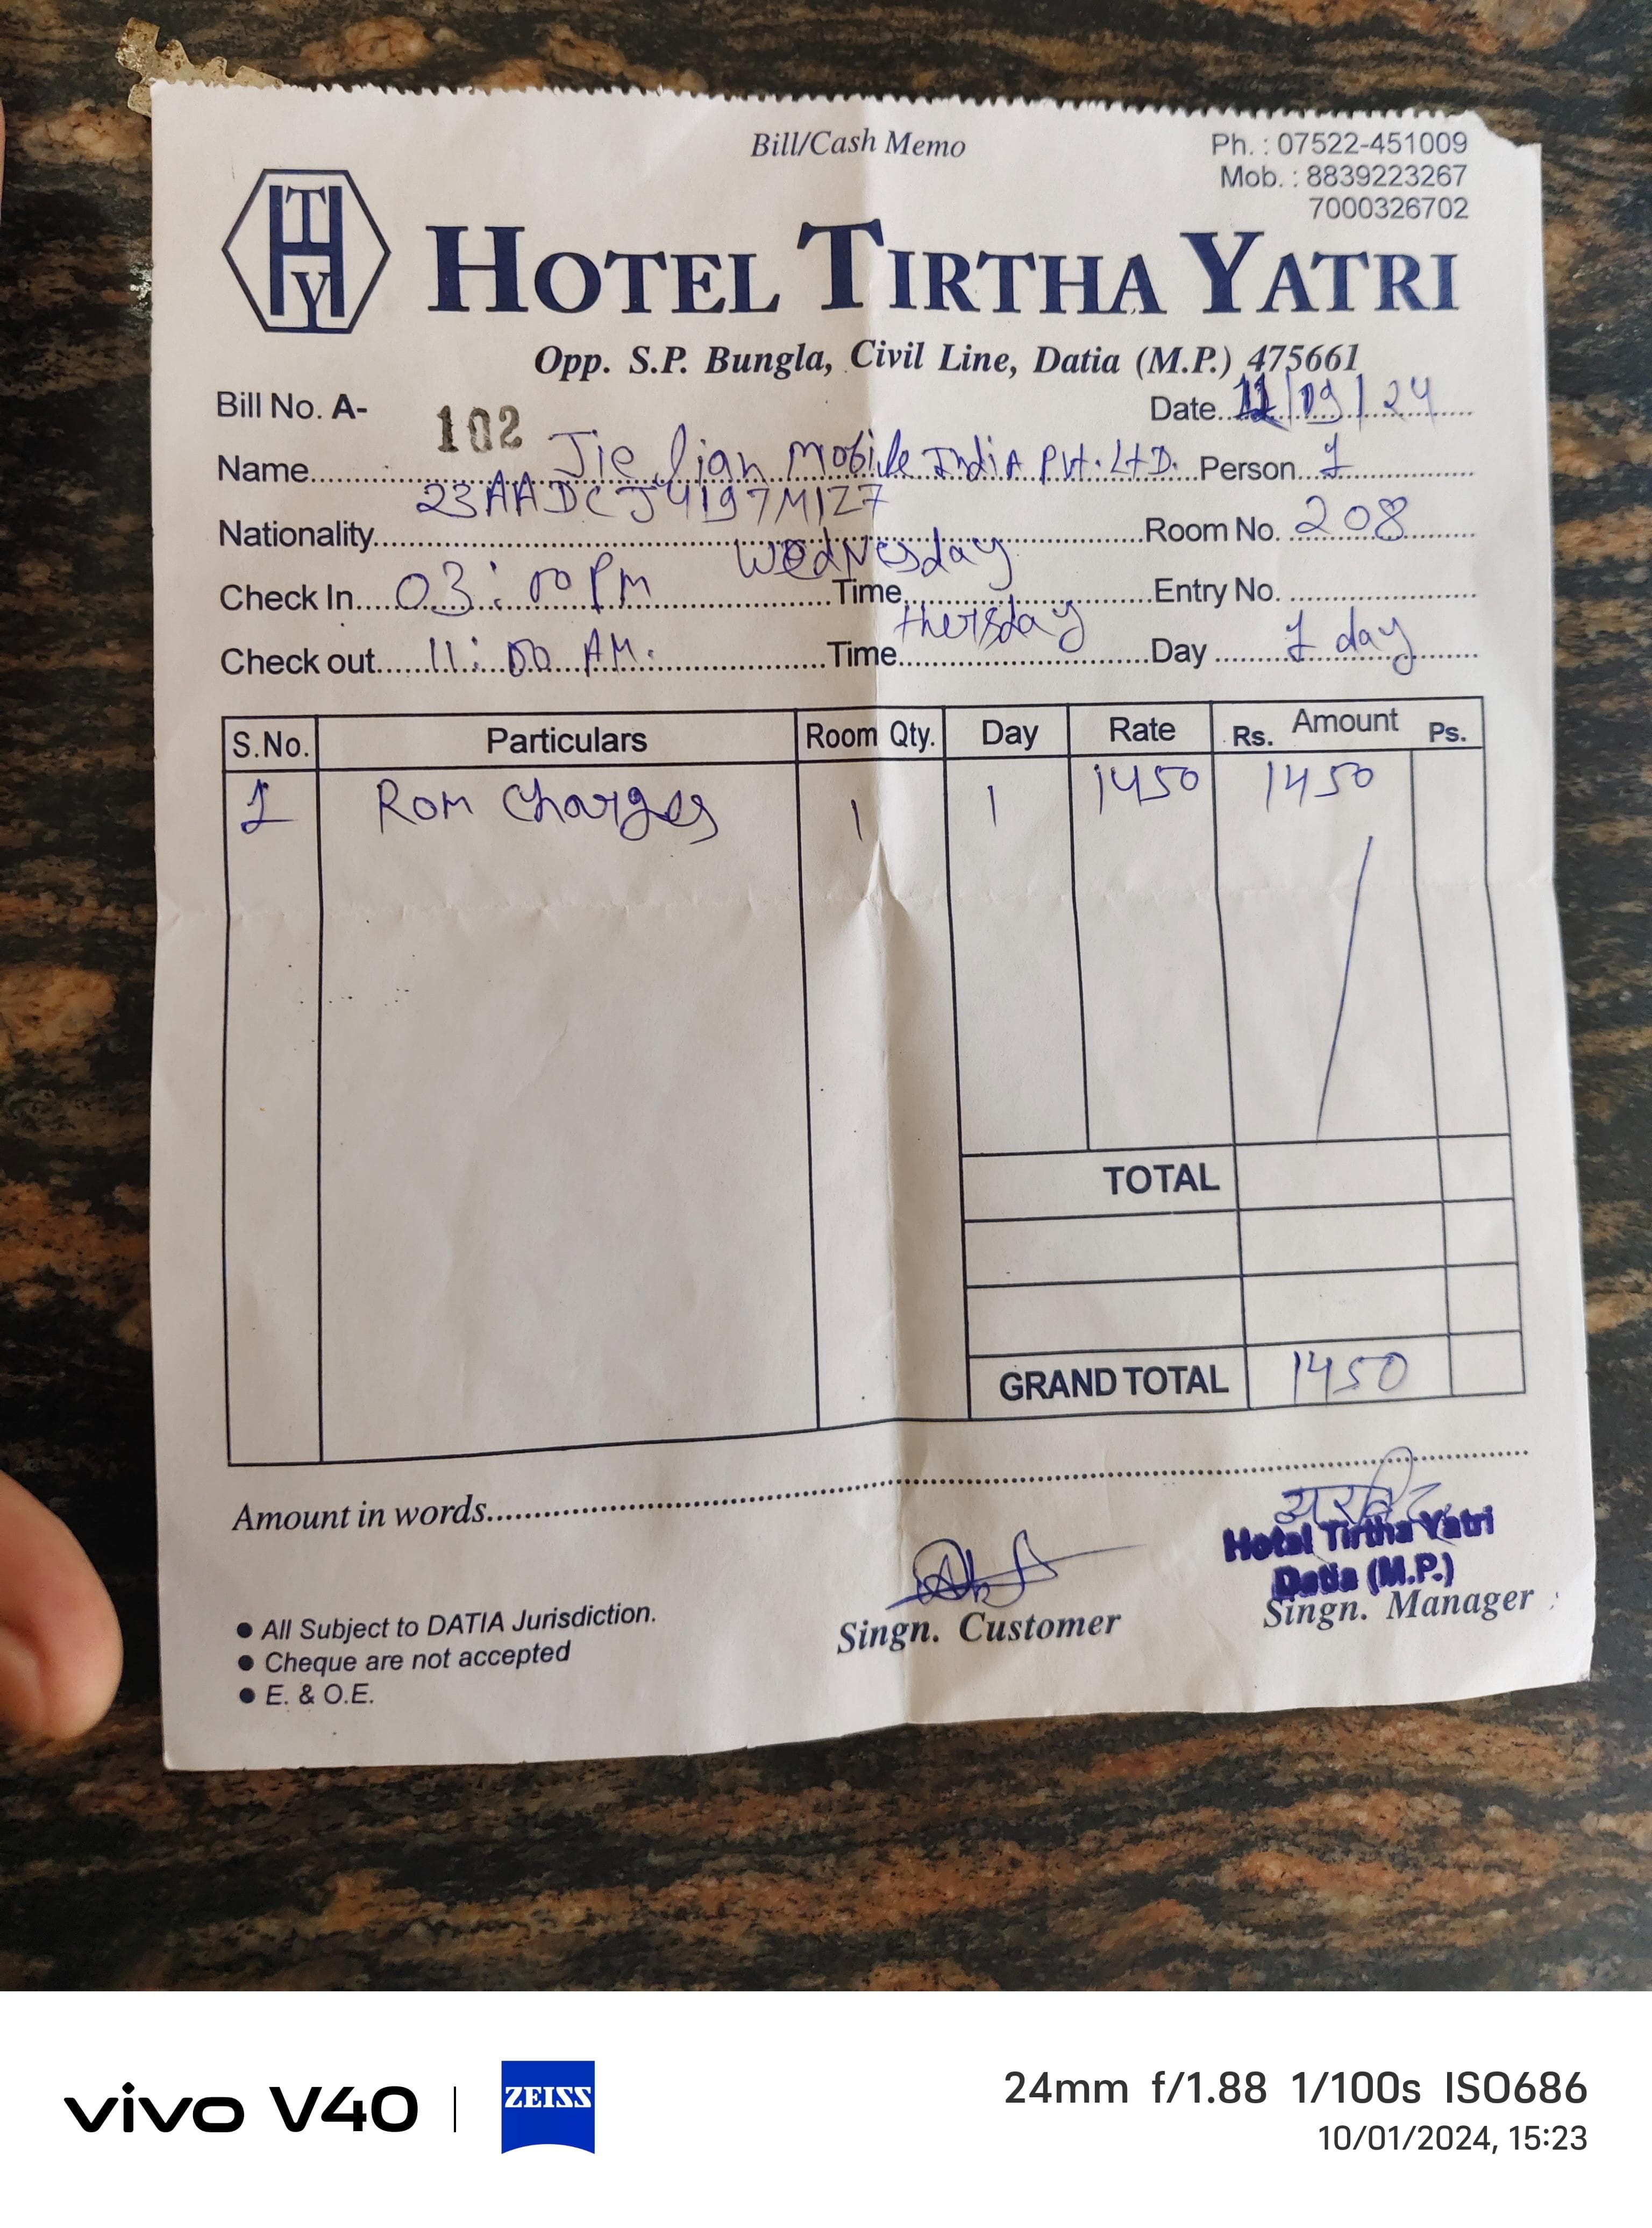 Bill/Cash Memo
Ph. : 07522-451009
Mob. : 8839223267
7000326702
HTY
HOTEL TIRTHA YATRI
Opp. S.P. Bungla, Civil Line, Datia (M.P.) 475661
Bill No. A- 102 Date. 11/09/24
Name Jie Lian Mobile India Pvt. Ltd. Person 1
23AADCJ4197M1Z7
Nationality Room No. 208
Check In 03:00 PM Time Wednesday Entry No.
Check out 11:00 AM. Time thersday Day 1 day
S.No. Particulars Room Qty. Day Rate Amount Rs. Ps.
1 Rom Charges 1 1 1450 1450
TOTAL
GRAND TOTAL 1450
Amount in words
Hotel Tirtha Yatri
Datia (M.P.)
Singn. Customer Singn. Manager
• All Subject to DATIA Jurisdiction.
• Cheque are not accepted
• E. & O.E.
vivo V40 | ZEISS
24mm f/1.88 1/100s ISO686
10/01/2024, 15:23